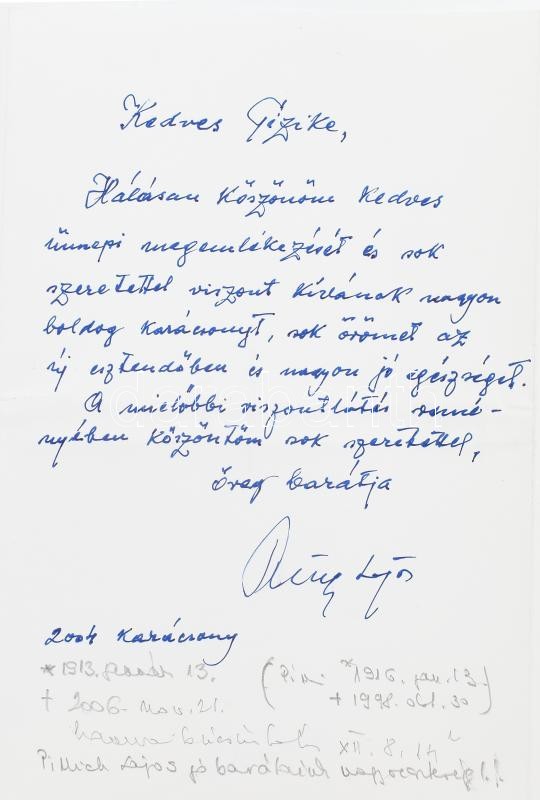 Kedves Gizike,
Hálásan köszönöm kedves
ünnepi megemlékezését és sok
szeretettel viszont kívánok nagyon
boldog karácsonyt, sok örömet az
új esztendőben és nagyon jó egészséget.
A mielőbbi viszontlátás remé-
nyében köszöntöm sok szeretettel,
öreg barátja
Lajos
2004 Karácsony
*1913. január 13. ( *1916. jan. 13.
† 2006. nov. 21. + 1998. okt. 30 )
XII. 8. 14
Lajos jó barátaink